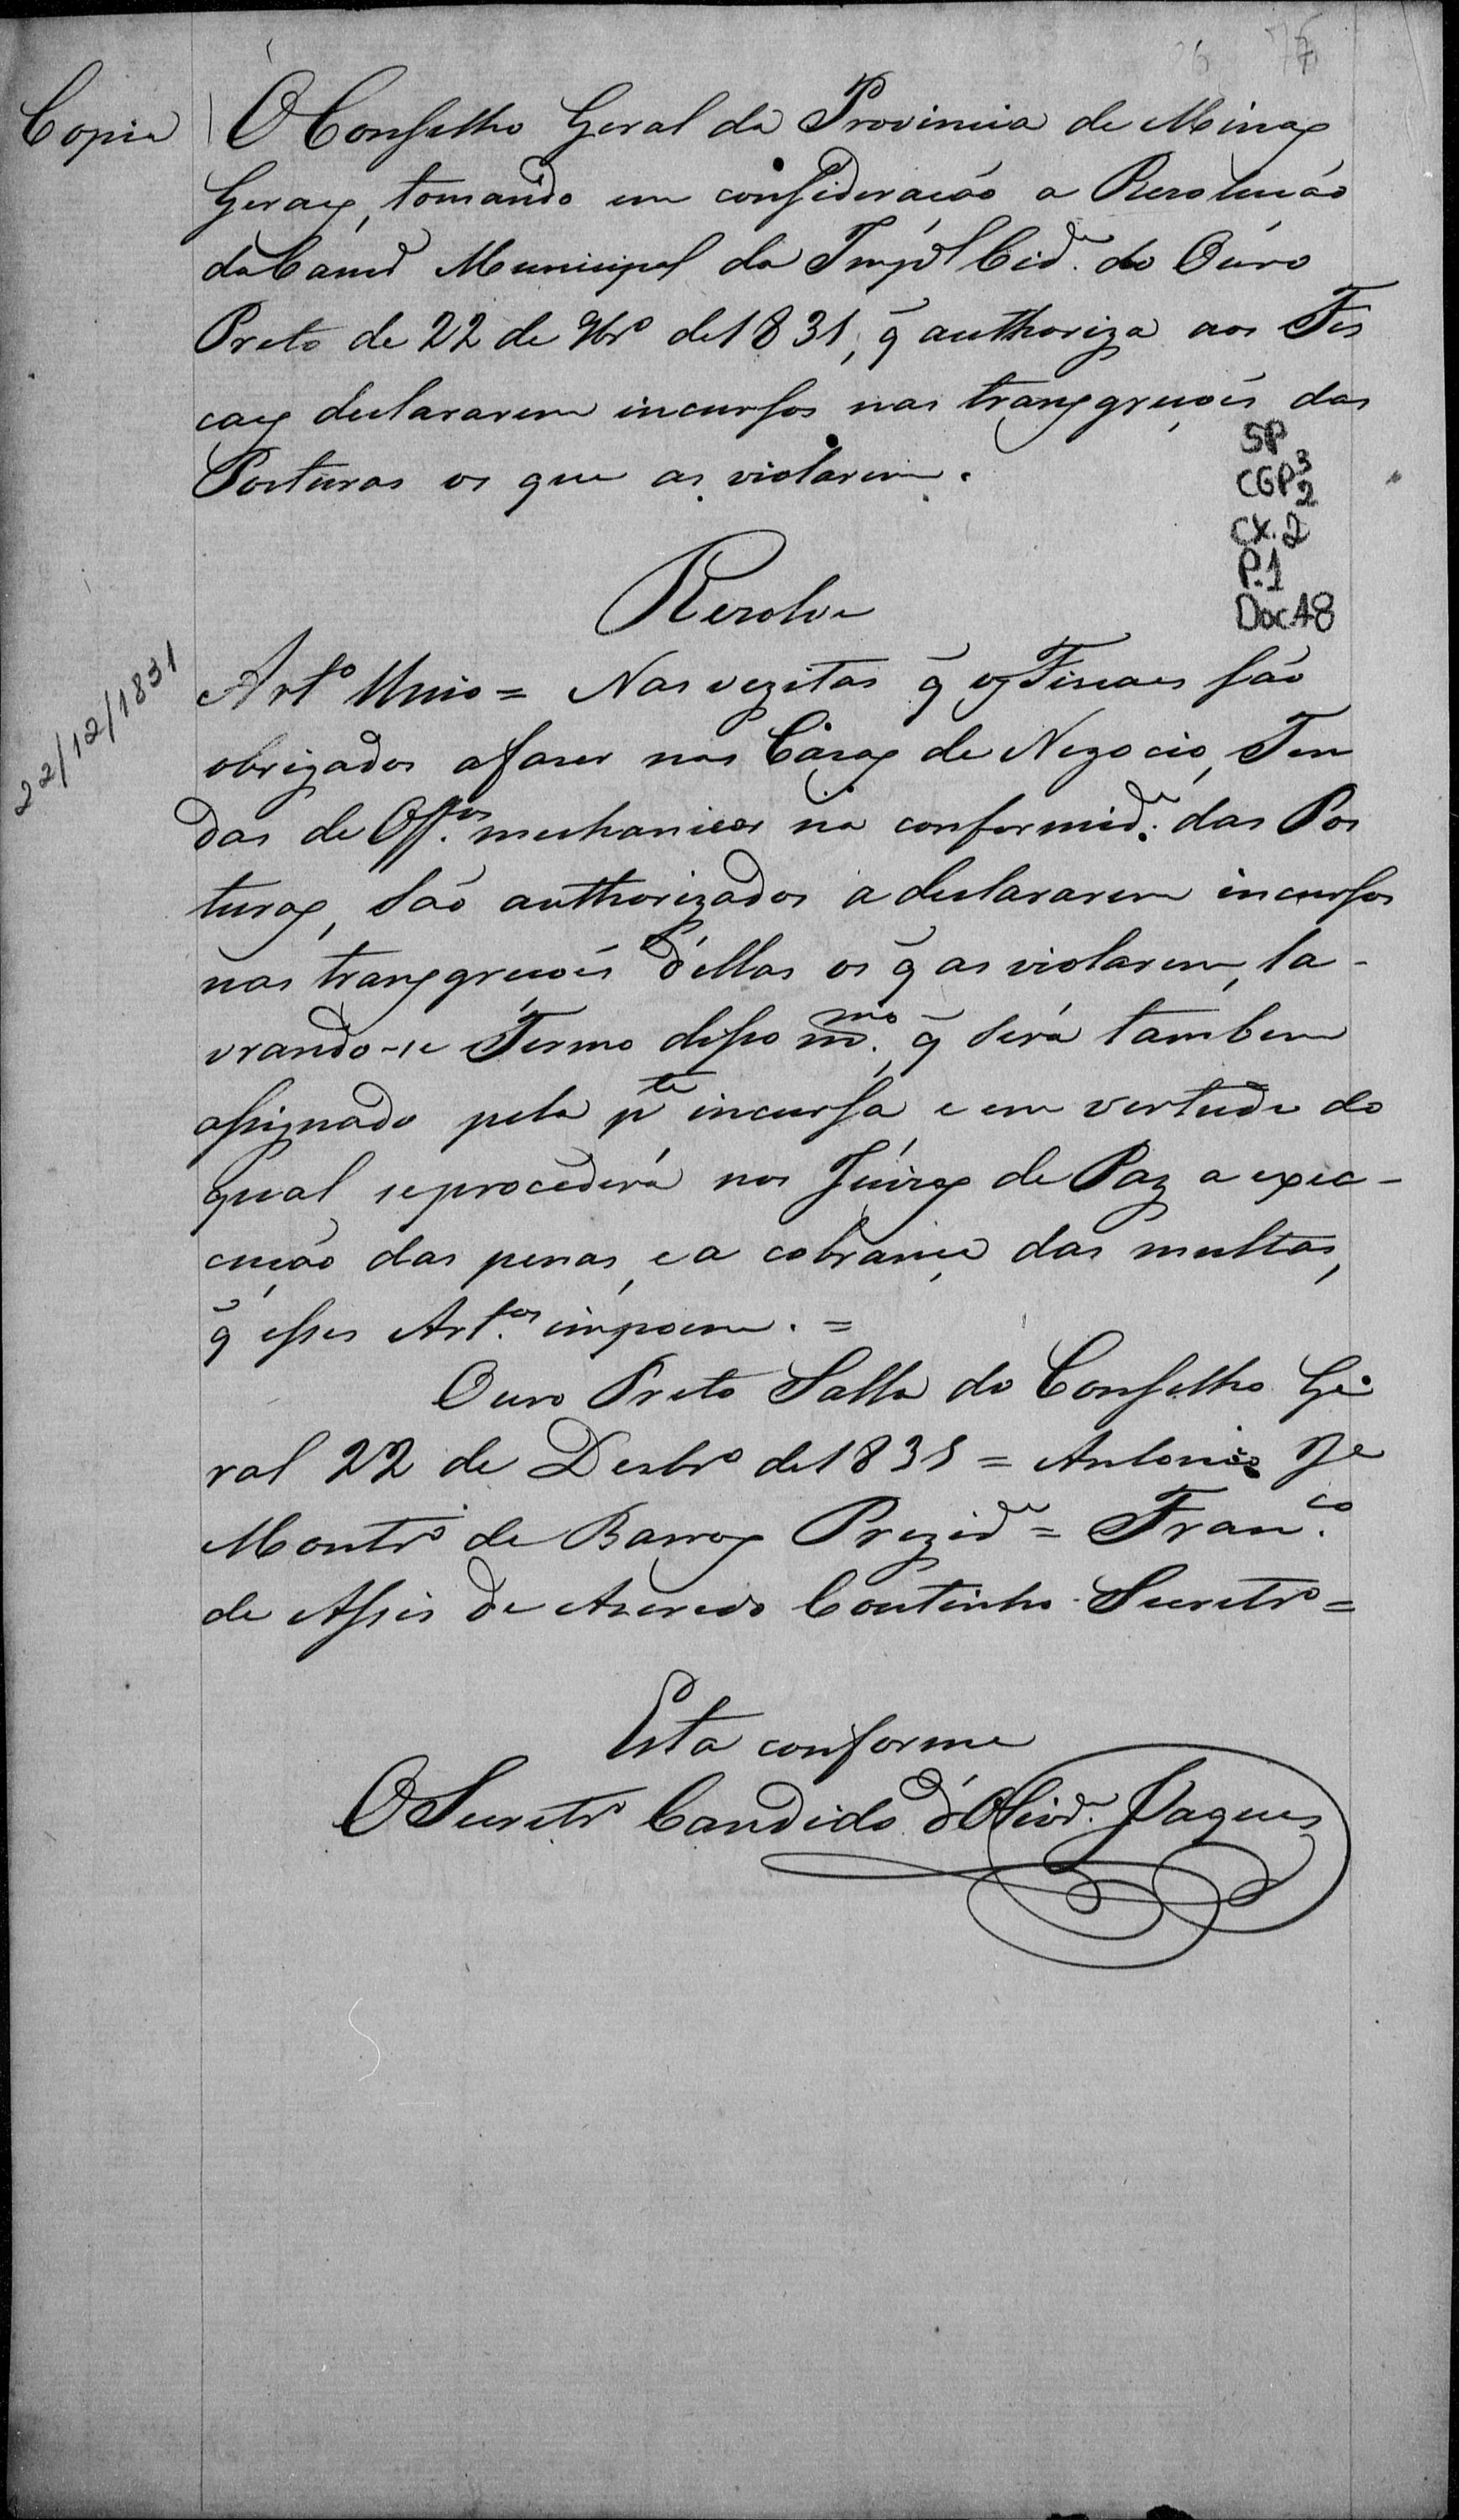 76
Copia
O Conselho Geral da Provincia de Minas
Geraes, tomando em consideração a Rezolução
da Camª Municipal da Impal Cide. do Ouro
Preto de 22 de 9brº de 1831, q̃ authoriza aos Fis
caes declararem incursos nas transgreçoẽs das
Posturas os que as violarem.
SP
CGP 3
2
CX. 2
P.1
Doc 48
Rezolve
22/12/1831
Artº Unico = Nas vezitas q̃ os Fiscaes são
obrigados a faser nas Casas de Negocio, Ten
das de Offos. mechanicos na conformide. das Pos
turas, são authorizados a declararem incursos
nas transgreçoẽs d'ellas os q̃ as violarem, la-
vrando-se Termo disso mmo., q̃ será tambem
assignado pela pte incursa e em vertude do
qual se procederá nos Juizos de Paz a exec-
cução das penas, e a cobrança das multas,
q̃ esses Artos. impoem. =
Ouro Preto Salla do Conselho Ge
ral 22 de Desbrº de 1831 = Antonio Je
Montrº de Barros Prezide = Franco.
de Assis de Azeredo Coutinho Secretrº =
Esta conforme
O Secretrº Candido d'Olivrª. Jaques